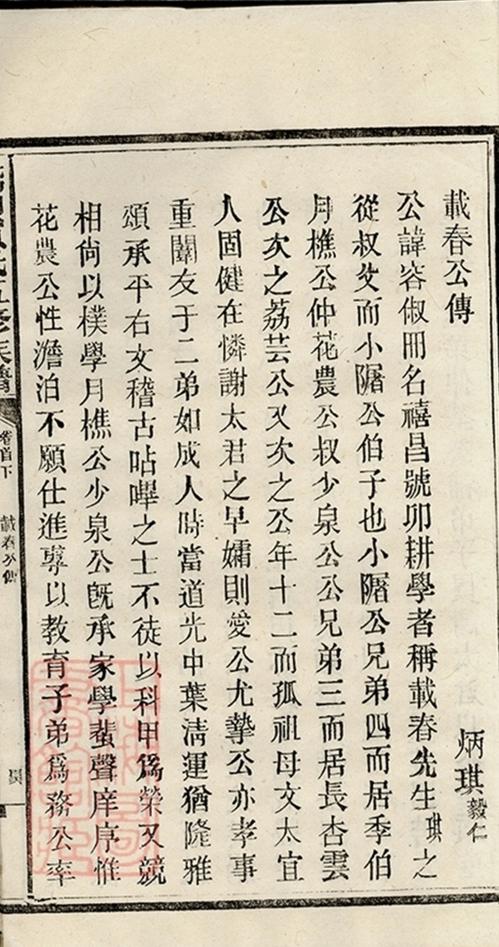 載春公傳
炳琪毅仁
公諱容俶冊名禧昌號卯耕學者稱載春先生琪之
從叔父而小隬公伯子也小隬公兄弟四而居季伯
月樵公仲花農公叔少泉公公兄弟三而居長杏雲
公次之荔芸公又次之公年十二而孤祖母文太宜
人固健在憐謝太君之早孀則愛公尤摯公亦孝事
重闈友于二弟如成人時當道光中葉淸運猶隆雅
頌承平右文稽古呫嗶之士不徒以科甲爲榮又競
相尙以樸學月樵公少泉公旣承家學蜚聲庠序惟
花農公性澹泊不願仕進專以教育子弟爲務公率
五修族譜
卷首下
載春公傳